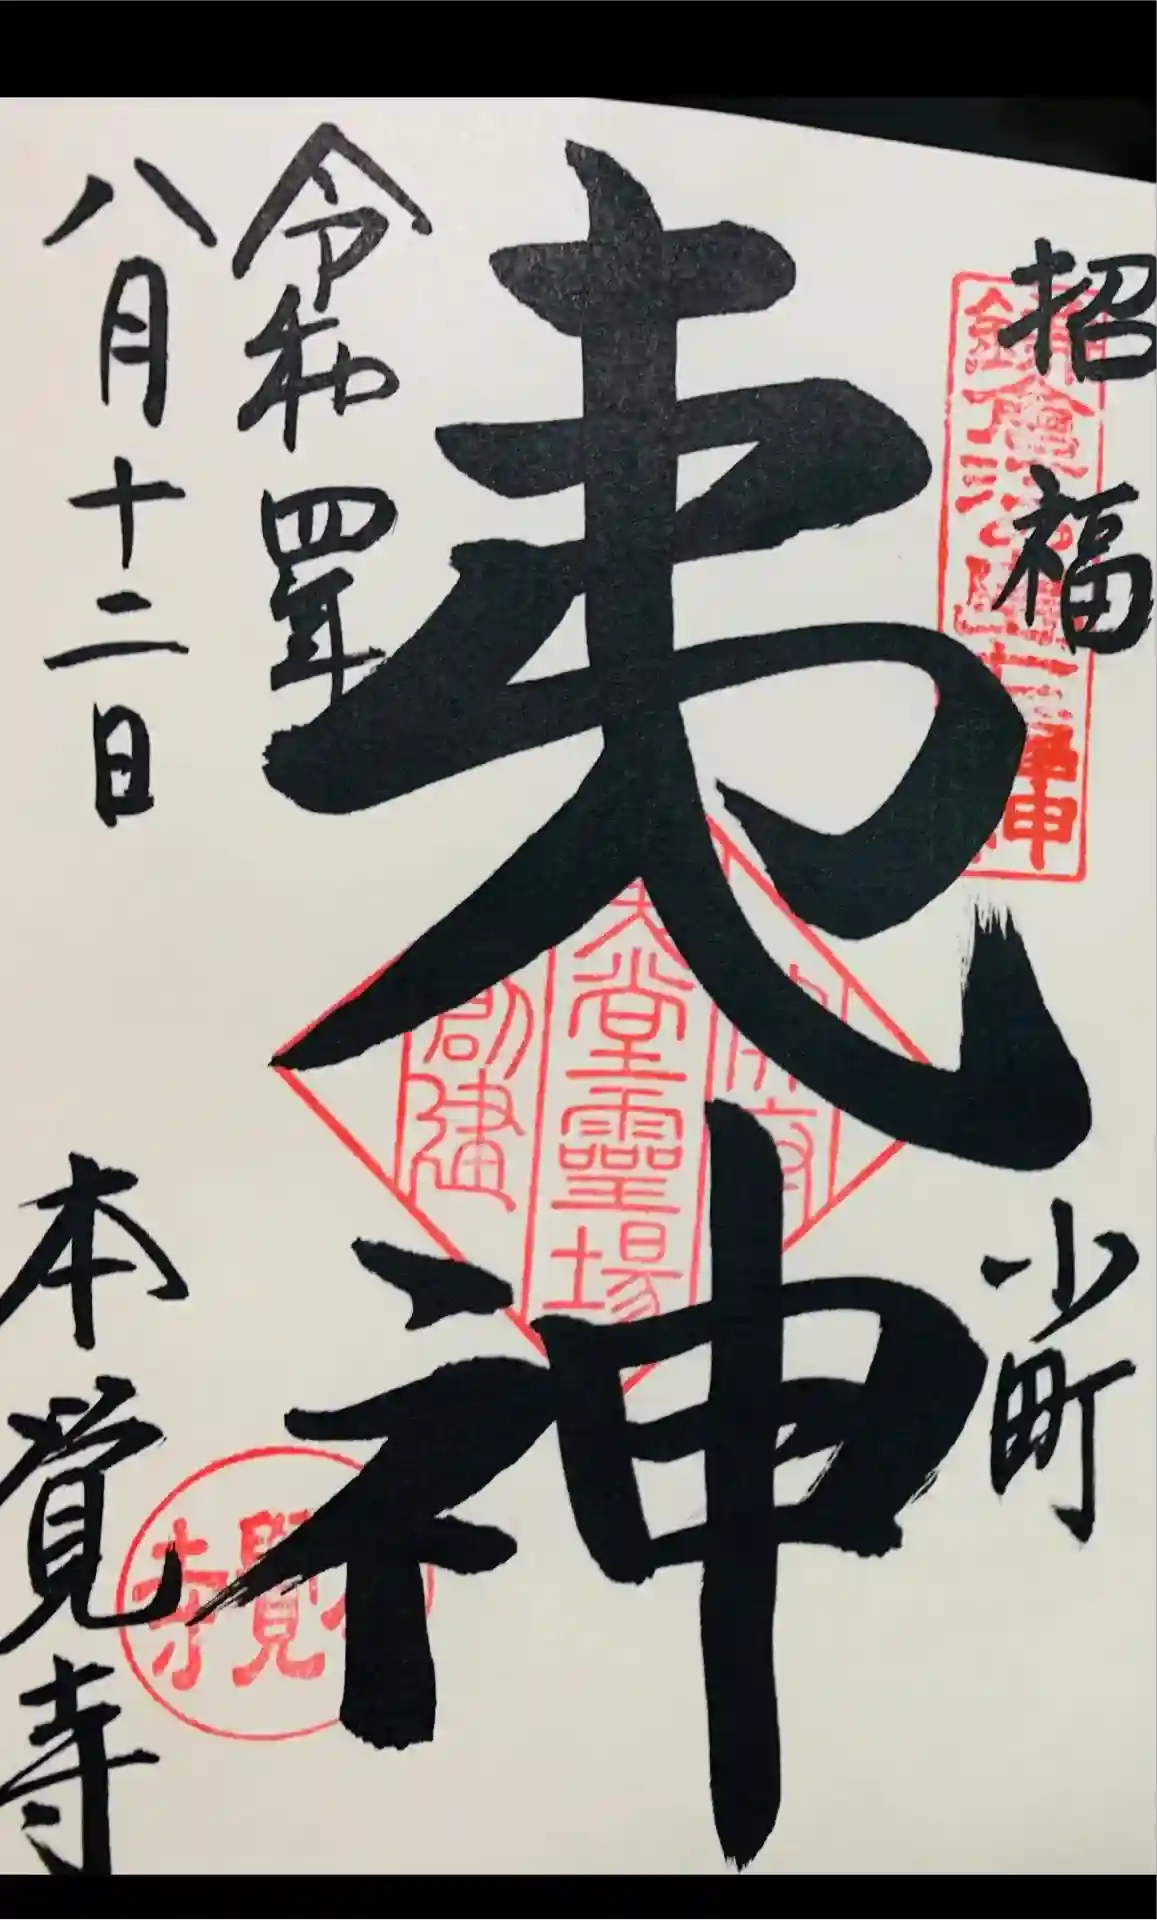 招福
小町
鎌倉江ノ島七福神
夷神
夷堂霊場
創建
令和四年
八月十二日
本覚寺
本覚寺